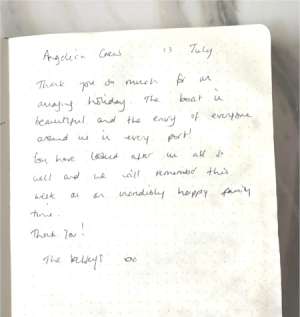 Angelica Crew 13 July
Thank you so much for an
amazing holiday. The boat is
beautiful and the envy of everyone
around us in every port!
You have looked after us all so
well and we will remember this
week as an incredibly happy family
time.
Thank You!
The